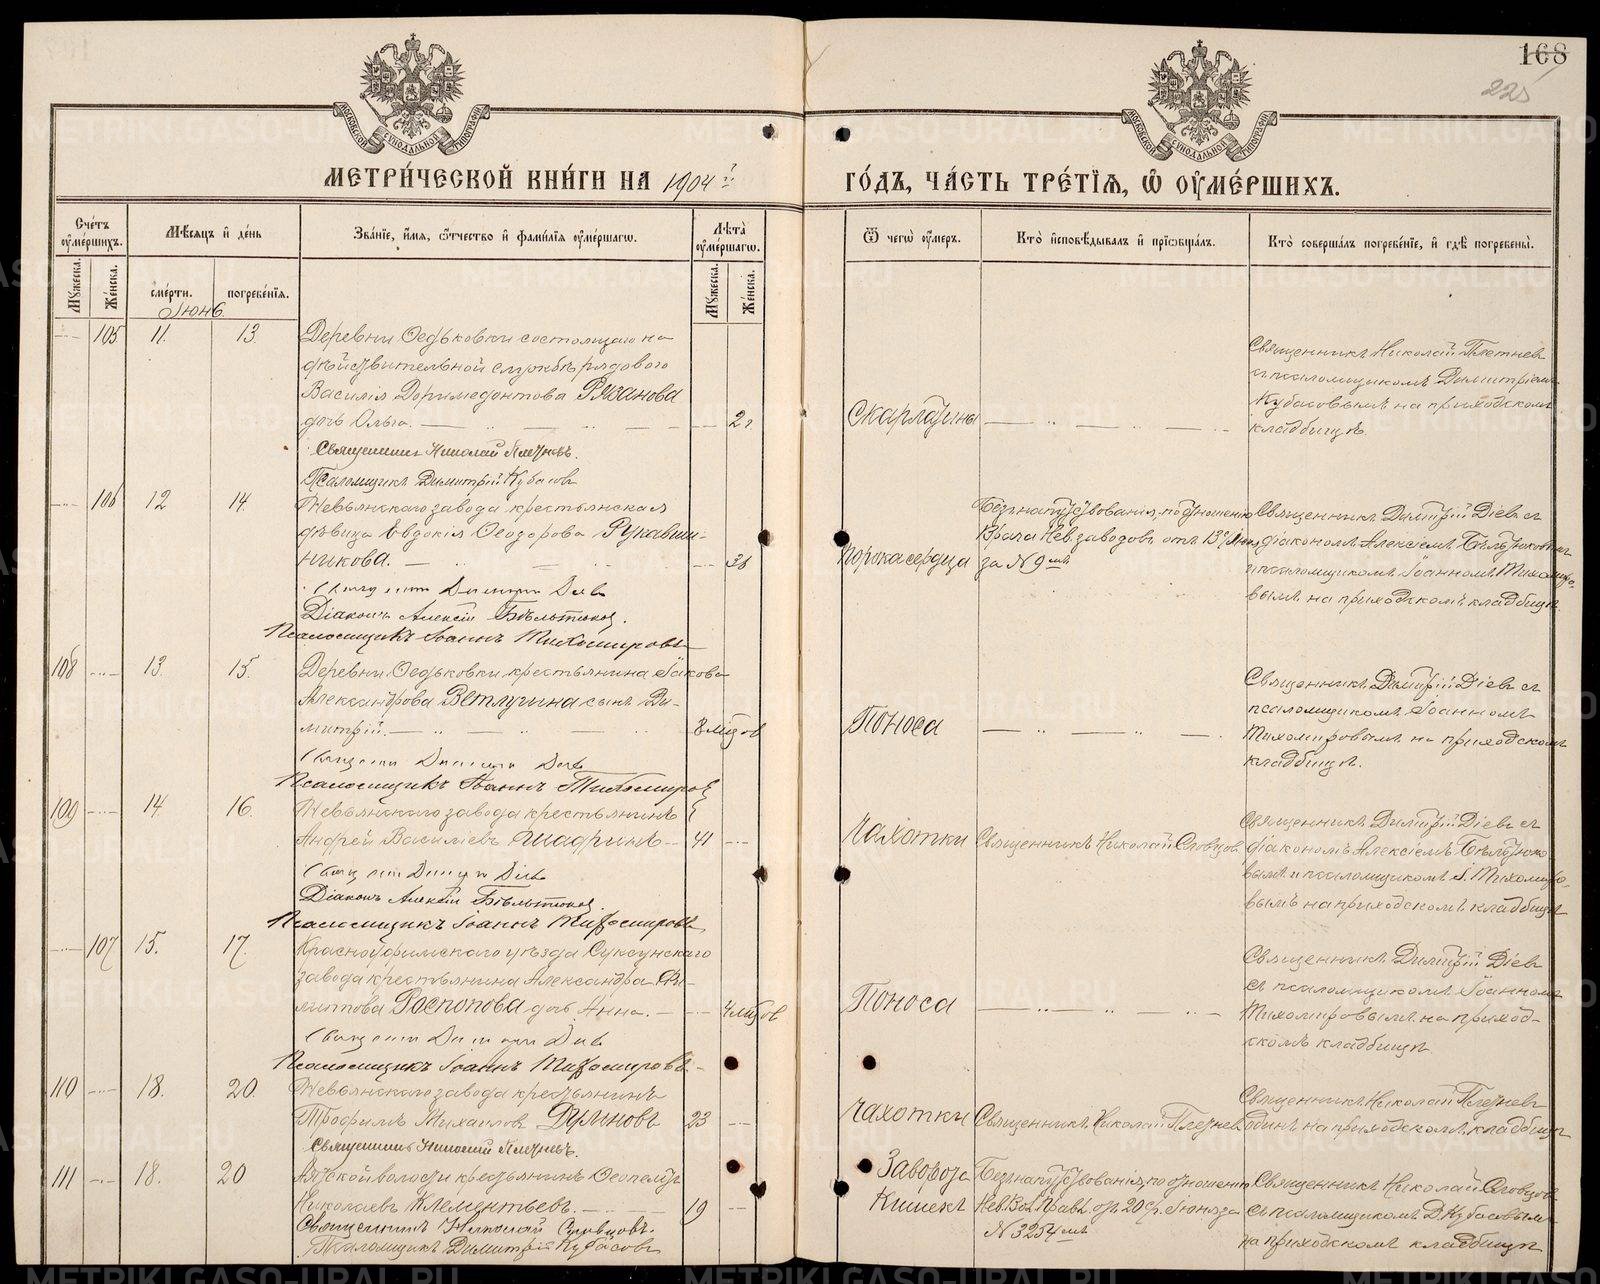 168
225
МОСКОВСКОЙ СѴНОДАЛЬНОЙ ТИПОГРАФІИ
МОСКОВСКОЙ СѴНОДАЛЬНОЙ ТИПОГРАФІИ
МЕТРИ́ЧЕСКОЙ КНИ́ГИ НА 1904й
ГО́ДЪ, ЧА́СТЬ ТРЕ́ТІѦ, Ѽ ОУМЕ́РШИХЪ.
Счетъ оумершихъ.
Мѣсяцъ и день
Званіе, имя, отчество и фамилія оумершагѡ.
Лѣта оумершагѡ.
Ѿ чегѡ оумеръ.
Кто исповѣдывалъ и пріобщалъ.
Кто совершалъ погребеніе, и гдѣ погребены.
Мужеска.
Женска.
смерти.
погребенія.
Мужеска.
Женска.
Іюнь.
105 11. 13.
Деревни Ѳедьковки состоящаго на
дѣйствительной службѣ рядового
Василія Доримедонтова Рязанова
дочь Ольга. 2 г
Скарлатины
Священникъ Николай Плетнев
с псаломщикомъ Димитріемъ
Кубасовымъ на приходскомъ
кладбищѣ.
Священникъ Николай Плетневъ.
Псаломщикъ Димитрій Кубасовъ
106 12 14.
Невьянскаго завода крестьянская
дѣвица Евдокія Ѳеодорова Рукавиш-
никова.
Порока сердца
Безъ напутствованія, по отношенію
Врача Нев. заводовъ отъ 13 Іюня
за № 9мъ
Священникъ Димитрій Діевъ съ
діакономъ Алексіемъ Бѣльтюковымъ
и псаломщикомъ Іоанномъ Тихоміро-
вымъ на приходскомъ кладбищѣ
Священникъ Димитрій Діевъ
Діаконъ Алексій Бѣльтюковъ.
Псаломщикъ Іоаннъ Тихомировъ
108 13. 15.
Деревни Ѳедьковки крестьянина Іакова
Александрова Ветлугина сынъ Ди-
митрій. 8 мѣсцов
Поноса
Священникъ Димитрій Діевъ съ
псаломщикомъ Іоанномъ
Тихомировымъ на приходскомъ
кладбищѣ.
Священникъ Димитрій Діевъ
Псаломщикъ Іоаннъ Тихомировъ
109 14. 16.
Невьянскаго завода крестьянинъ
Андрей Василіевъ Шадринъ 41
Чахотки
Священникъ Николай Словцов.
Священникъ Димитрій Діевъ съ
діакономъ Алексіемъ Бѣльтюко-
вымъ и псаломщикомъ І. Тихоміро-
вымъ на приходскомъ кладбищѣ
Священникъ Димитрій Діевъ
Діаконъ Алексій Бѣльтюковъ.
Псаломщикъ Іоаннъ Тихомировъ
107 15. 17.
Красноуфимскаго уѣзда Суксунскаго
завода крестьянина Александра Фи-
липпова Распопова дочь Анна. 4 мѣсцов
Поноса
Священникъ Димитрій Діевъ
съ псаломщикомъ Іоанномъ
Тихомировымъ на приход-
скомъ кладбищѣ
Священникъ Димитрій Діевъ
Псаломщикъ Іоаннъ Тихомировъ
110 18. 20.
Невьянскаго завода крестьянинъ
Трофимъ Михаиловъ Дулиновъ 23
Чахотки
Священникъ Николай Плетнев
Священникъ Николай Плетнев
одинъ на приходскомъ кладбищѣ
Священникъ Николай Плетневъ.
111 18. 20
волости крестьянинъ Ѳеопемптъ
Николаевъ Клементьевъ. 19
Заворота
Кишекъ
Безъ напутствованія, по отношенію
Нев. Вол. Правл. отъ 20 с. Іюня за
№ 3254мъ
Священникъ Николай Словцов
съ псаломщикомъ Д. Кубасовымъ
на приходскомъ кладбищѣ
Священникъ Николай Словцовъ.
Псаломщикъ Димитрій Кубасовъ
METRIKI.GASO-URAL.RU